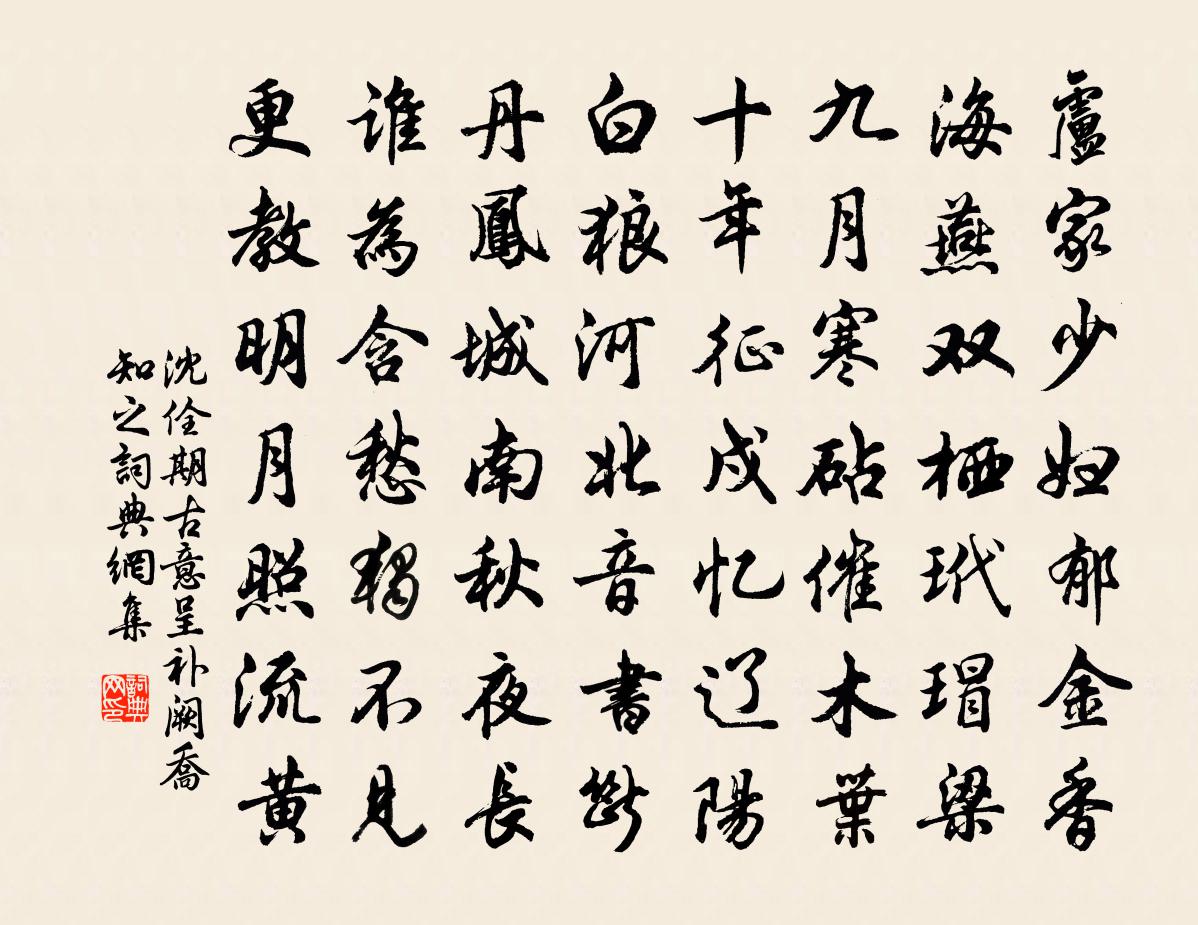 盧家少妇郁金香
海燕双栖玳瑁梁
九月寒砧催木葉
十年征戍忆辽陽
白狼河北音書斷
丹鳳城南秋夜長
誰為含愁獨不見
更教明月照流黄
沈佺期古意呈补阙喬
知之詞典網集
詞典网印